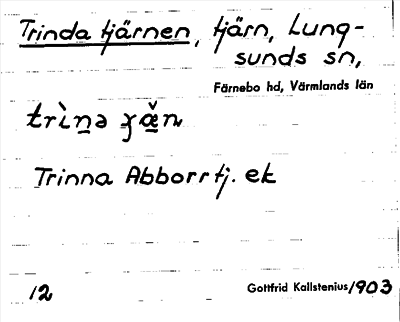 Trinda tjärnen, tjärn, Lung-
sunds sn,
Färnebo hd, Värmlands län
trìnə
Trinna Abborrtj. ek
12 Gottfrid Kallstenius 1903